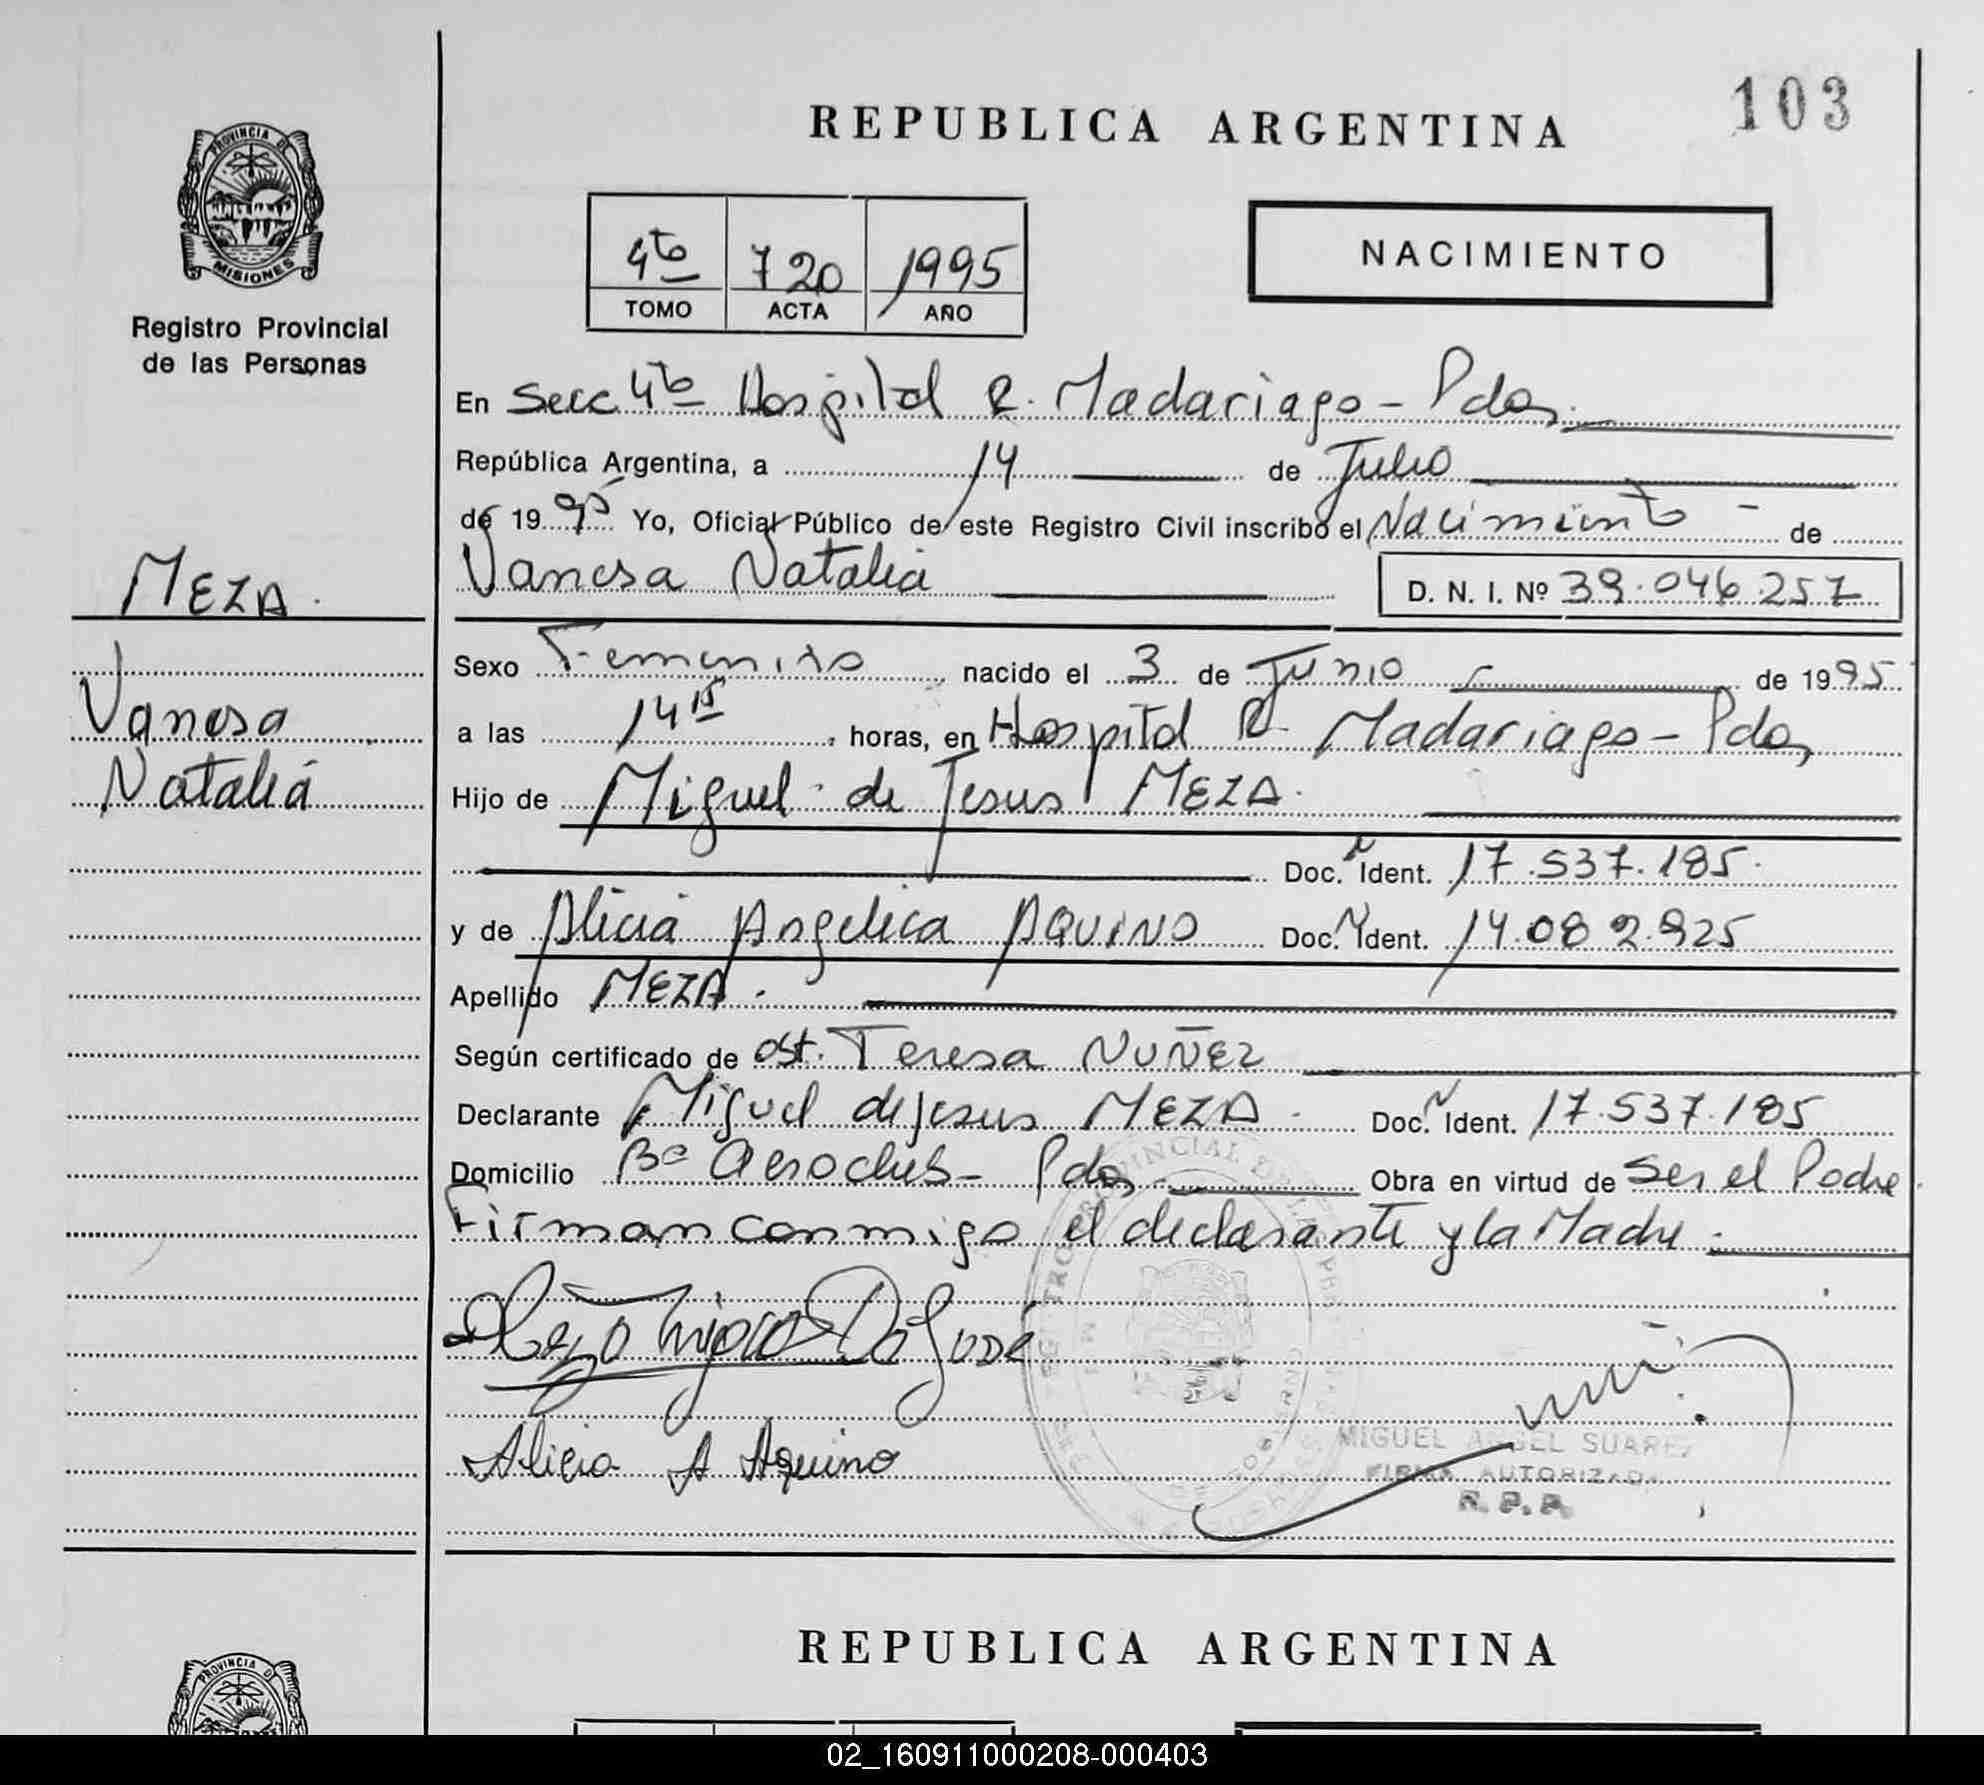 103
REPUBLICA ARGENTINA
PROVINCIA DE
MISIONES
Registro Provincial
de las Personas
4to 720 1995
TOMO ACTA AÑO
NACIMIENTO
En Secc 4to Hospital R. Madariaga - Pdas.
República Argentina, a 14 de Julio
de 1995 Yo, Oficial Público de este Registro Civil inscribo el Nacimiento - de
Vanesa Natalia D. N. I. Nº 39.046.257
MEZA.
Vanesa
Natalia
Sexo Femenino nacido el 3 de Junio de 1995
a las 14 15 horas, en Hospital R. Madariaga - Pdas,
Hijo de Miguel de Jesus MEZA.
Doc. Ident. 17.537.185.
y de Alicia Angelica AQUINO Doc. Ident. 14.082.925
Apellido MEZA.
Según certificado de obst. Teresa NUÑEZ
Declarante Miguel de Jesus MEZA. Doc. Ident. 17.537.185
Domicilio Bº Aeroclub - Pdas Obra en virtud de Ser el Padre
Firman conmigo el declarante y la Madre.
Alicia A Aquino
MIGUEL ANGEL SUAREZ
FIRMA AUTORIZADA
R. P. P.
REPUBLICA ARGENTINA
PROVINCIA D
02_160911000208-000403